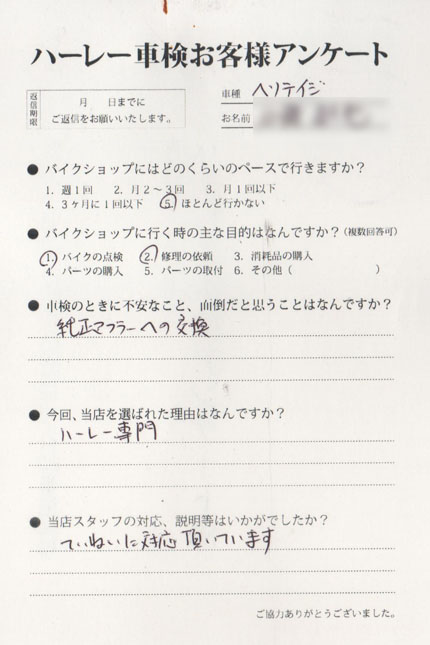 ハーレー車検お客様アンケート
返信期限
月　　日までに
ご返信をお願いいたします。
車種 ヘリテイジ
お名前
● バイクショップにはどのくらいのペースで行きますか？
1. 週1回　2. 月2～3回　3. 月1回以下
4. 3ヶ月に1回以下　5. ほとんど行かない
● バイクショップに行く時の主な目的はなんですか？（複数回答可）
1. バイクの点検　2. 修理の依頼　3. 消耗品の購入
4. パーツの購入　5. パーツの取付　6. その他（　　　　　　）
● 車検のときに不安なこと、面倒だと思うことはなんですか？
純正マフラーへの交換
● 今回、当店を選ばれた理由はなんですか？
ハーレー専門
● 当店スタッフの対応、説明等はいかがでしたか？
ていねいに対応頂いています
ご協力ありがとうございました。